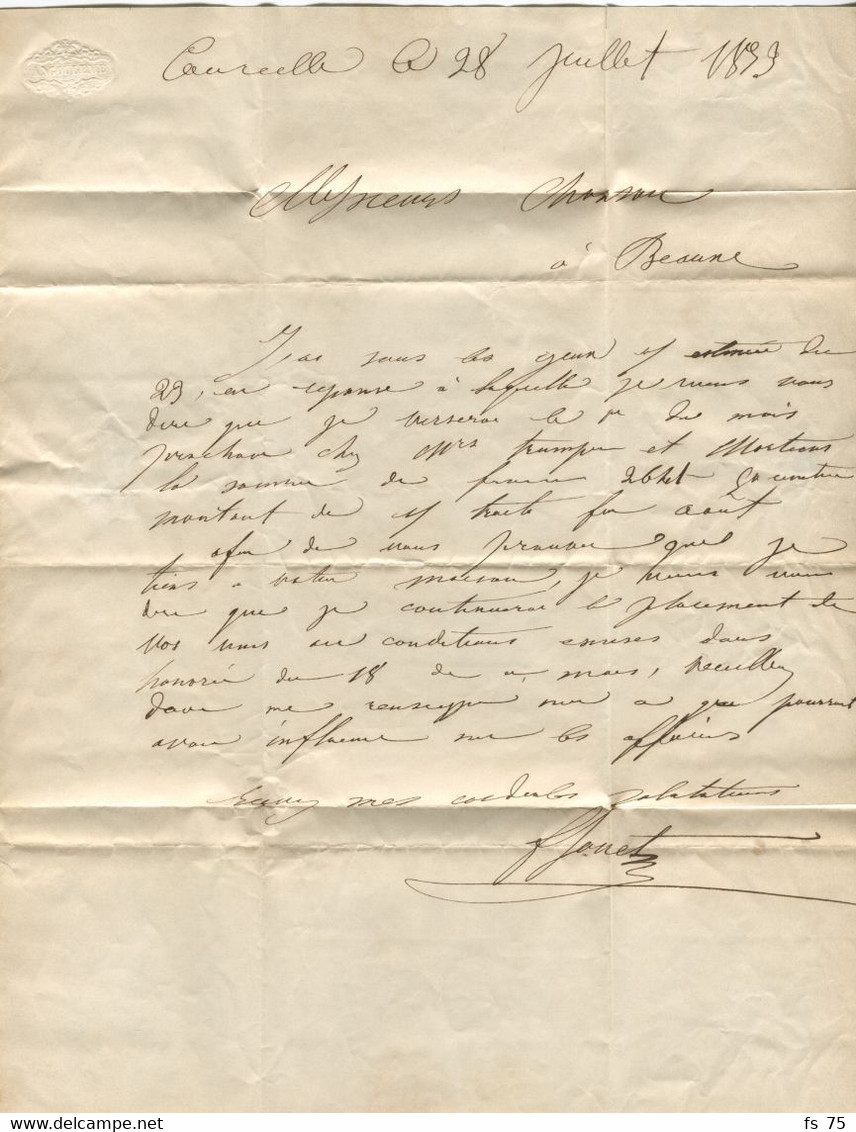 Courcelle le 28 juillet 1853
Messieurs Chanson
à Beaune
J'ai sous les yeux v/ estimée du
23, en reponse à laquelle je viens vous
dire que je verserai le 1r du mois
prochain chez Mrs et
la somme de francs
montant de v/ traite fin août
afin de vous prouver que je
tiens a votre maison, je viens vous
dire que je continuerai le placement de
vos vins au conditions emises dans
honorée du 18 de ce mois, veuillez
donc me renseigner sur ce que pourrait
avoir influence sur les affaires
Recevez mes cordiales salutations
f Jouet
fs 75